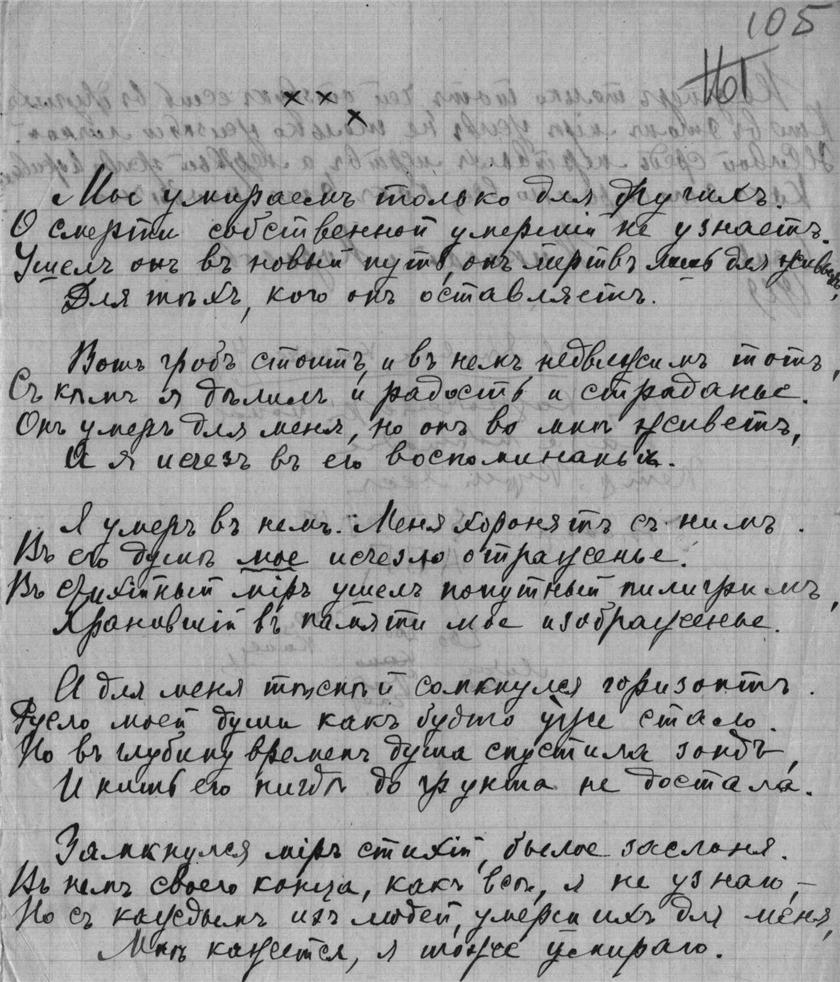 105
161
× ×
×
Мы умираемъ только для другихъ.
О смерти собственной умершій не узнаетъ.
Ушелъ онъ въ новый путь, онъ мертвъ лишь для живыхъ,
Для тѣхъ, кого онъ оставляетъ.
Вотъ гробъ стоитъ, и въ немъ недвижимъ тотъ,
Съ кѣмъ я дѣлилъ и радость и страданье.
Онъ умеръ для меня, но онъ во мнѣ живетъ,
А я исчезъ въ его воспоминаньи.
Я умеръ въ немъ. Меня хоронятъ съ нимъ.
Въ его душѣ мое исчезло отраженье.
Въ стихійный міръ ушелъ попутный пилигримъ,
Хранившій въ памяти мое изображенье.
И для меня тѣсный сомкнулся горизонтъ.
Русло моей души какъ будто уже стало.
Но въ глубину временъ душа спустила зондъ,
И нить его нигдѣ до грунта не достала.
Замкнулся міръ стихій, былое заслоня.
Въ немъ своего конца, какъ всѣ, я не узнаю, –
Но съ каждымъ изъ людей, умершихъ для меня,
Мнѣ кажется, я тоже умираю.